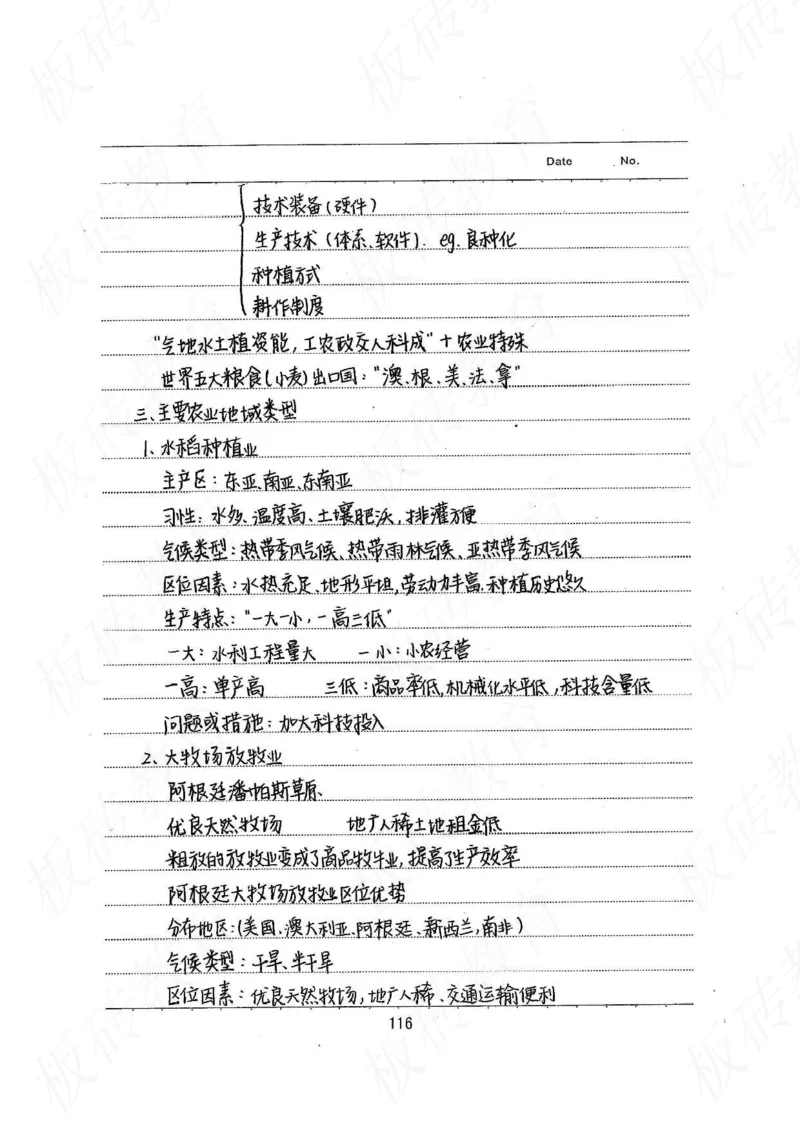 Date No.
技术装备(硬件)
生产技术(体系、软件). eg.良种化
种植方式
耕作制度
"气地水土植资能,工农政交人科成"+农业特殊
世界五大粮食(小麦)出口国:"澳、根、美、法、拿"
三、主要农业地域类型
1、水稻种植业
主产区:东亚、南亚、东南亚
习性:水多、温度高、土壤肥沃,排灌方便
气候类型:热带季风气候、热带雨林气候、亚热带季风气候
区位因素:水热充足、地形平坦,劳动力丰富.种植历史悠久
生产特点:"一大一小,一高三低"
一大:水利工程量大 一小:小农经营
一高:单产高 三低:商品率低,机械化水平低,科技含量低
问题或措施:加大科技投入
2、大牧场放牧业
阿根廷潘帕斯草原、
优良天然牧场 地广人稀土地租金低
粗放的放牧业变成了商品牧牛业,提高了生产效率
阿根廷大牧场放牧业区位优势
分布地区:(美国、澳大利亚、阿根廷、新西兰,南非)
气候类型:干旱、半干旱
区位因素:优良天然牧场,地广人稀、交通运输便利
116
板砖教育